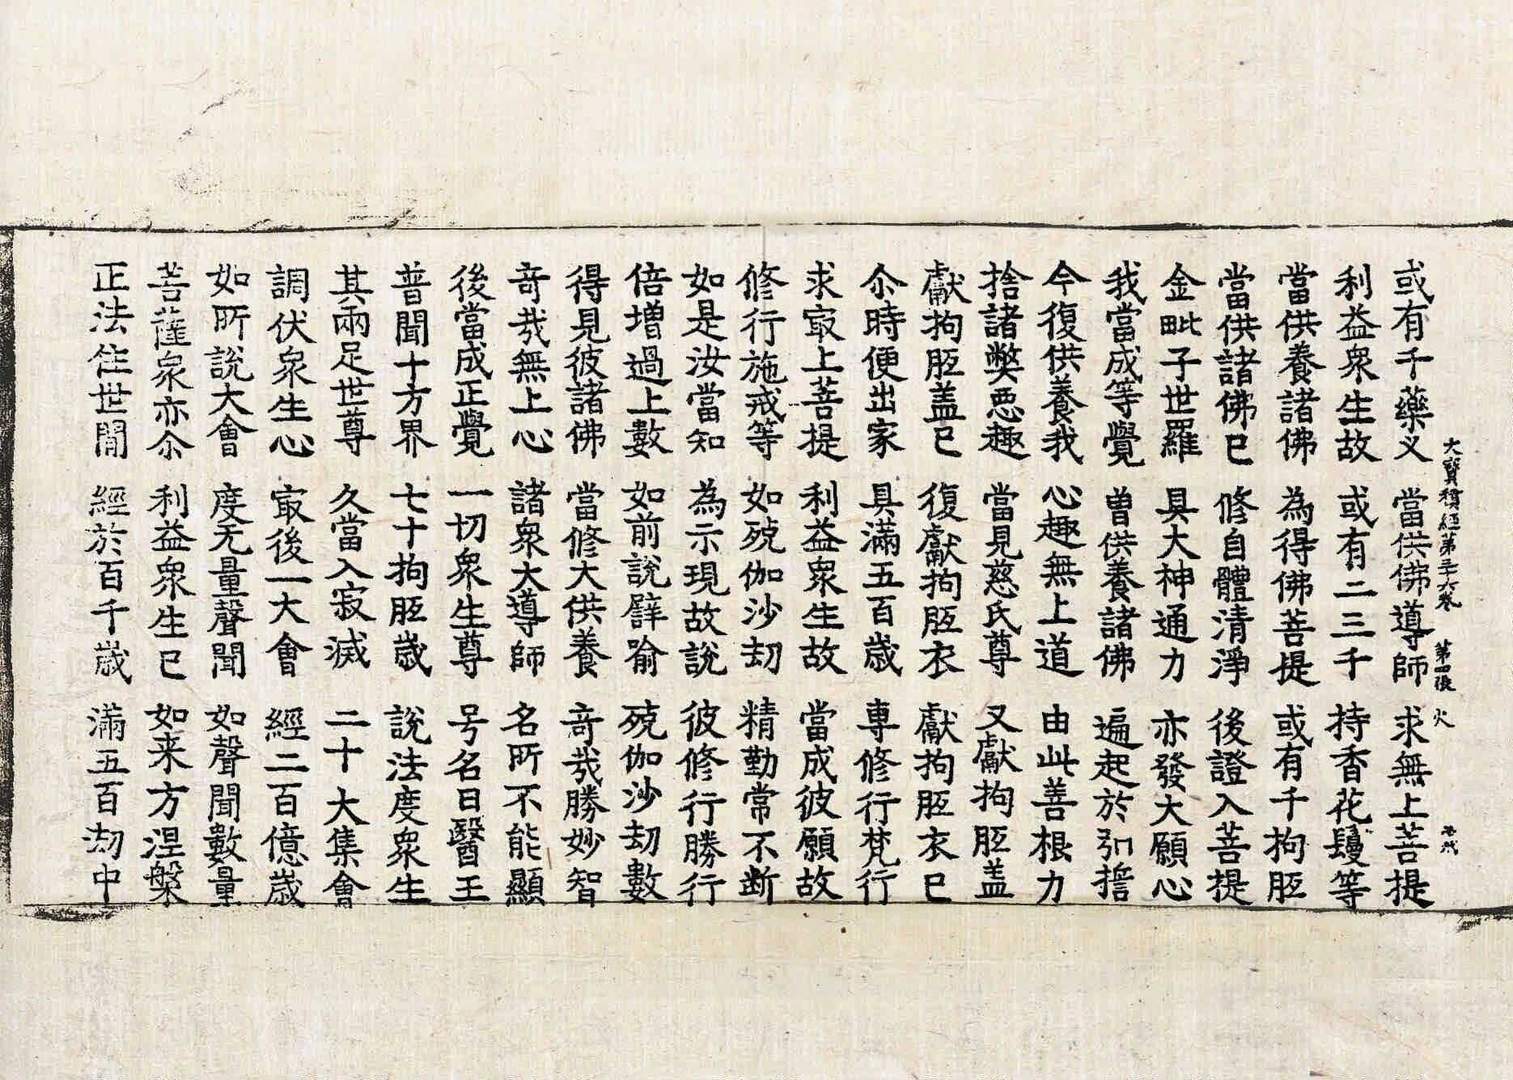 大寶積經第三六卷 第四張 火
或有千藥叉 當供佛導師 求無上菩提
利益衆生故 或有二三千 持香花鬘等
當供養諸佛 為得佛菩提 或有千拘胝
當供諸佛已 修自體清淨 後證入菩提
金毗子世羅 具大神通力 亦發大願心
我當成等覺 曽供養諸佛 遍起於弘擔
今復供養我 心趣無上道 由此善根力
捨諸弊惡趣 當見慈氏尊 又獻拘胝盖
獻拘胝盖已 復獻拘胝衣 獻拘胝衣已
尒時便出家 具滿五百歲 專修行梵行
求㝡上菩提 利益衆生故 當成彼願故
修行施戒等 如殑伽沙劫 精勤常不断
如是汝當知 為示現故說 彼修行勝行
倍增過上數 如前說譬喻 殑伽沙劫數
得見彼諸佛 當修大供養 奇哉勝妙智
奇哉無上心 諸衆大導師 名所不能顯
後當成正覺 一切衆生尊 号名曰醫王
普聞十方界 七十拘胝歲 說法度衆生
其兩足世尊 久當入寂滅 二十大集會
調伏衆生心 㝡後一大會 經二百億歲
如所說大會 度无量聲聞 如聲聞數量
菩薩衆亦尒 利益衆生已 如来方涅槃
正法住世間 經於百千歲 滿五百劫中